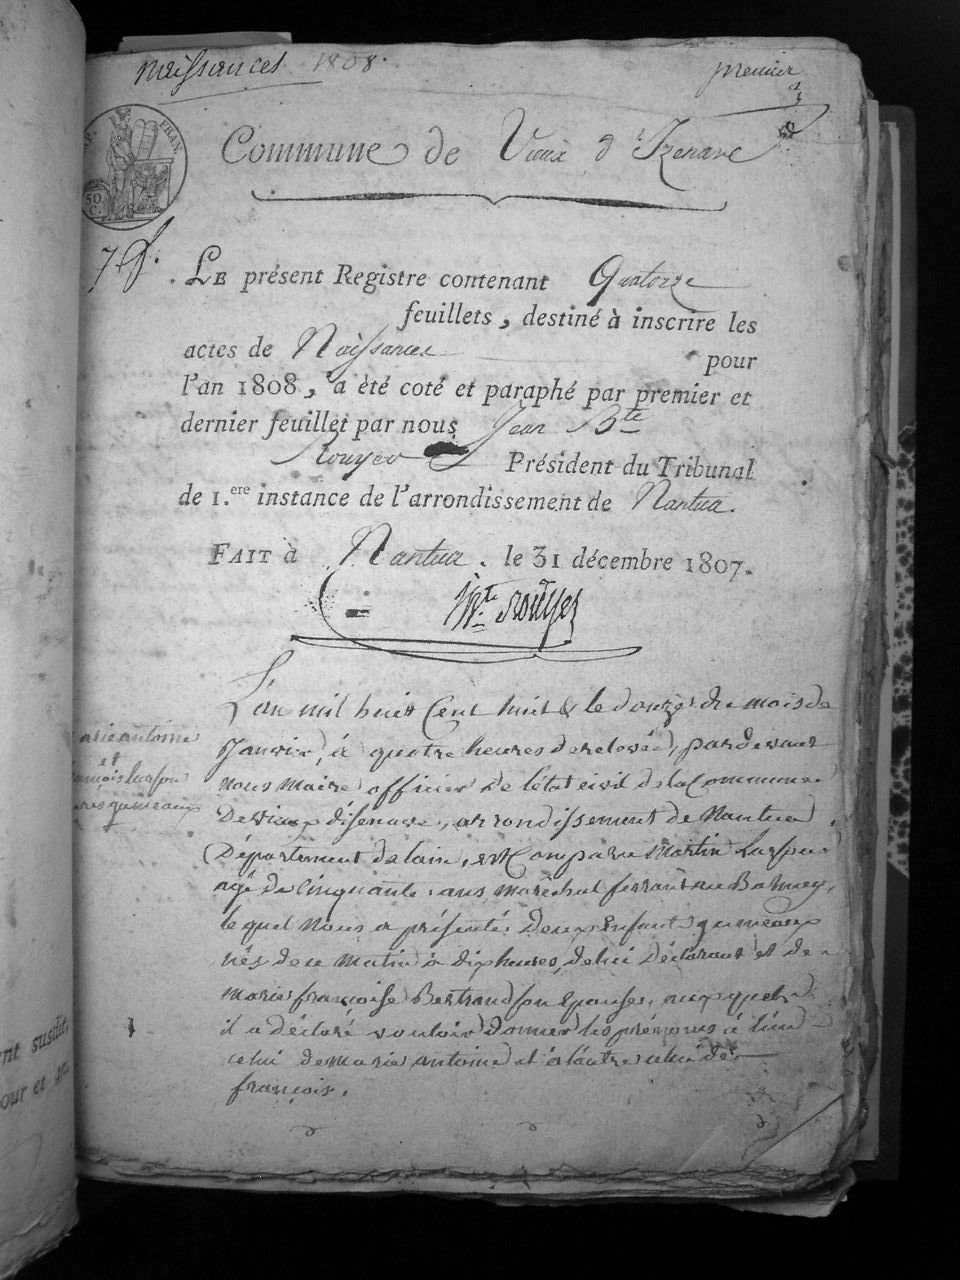 Naissances 1808.
premier
FRAN
50
C.
Commune de Vieux d'Izenave
LE présent Registre contenant Quatorze
feuillets, destiné à inscrire les
actes de Naissances pour
l'an 1808, a été coté et paraphé par premier et
dernier feuillet par nous Jean Bte
Rouyer Président du Tribunal
de 1.ere instance de l'arrondissement de Nantua.
FAIT à Nantua. le 31 décembre 1807.
Bte Rouyer
L'an mil huit Cent huit & le douze du mois de
Janvier, à quatre heures de relevée, pardevant
nous maire officier de l'état civil de la Commune
De vieux d'isenave, arrondissement de Nantua,
Département de lain, est Comparu Martin
agé de Cinquante ans, maréchal ferrant au Balmey,
lequel nous a présenté Deux Enfants gumeaux
nés de ce matin à dix heures, de lui Déclarant et de
marie françoise Bertrand son Epouse, auxquels
il a déclaré vouloir donner les prénoms à l'un
celui de marie antoine et à l'autre celui de
françois.
arie antoine
et
gumeaux
nt susdit,
our et